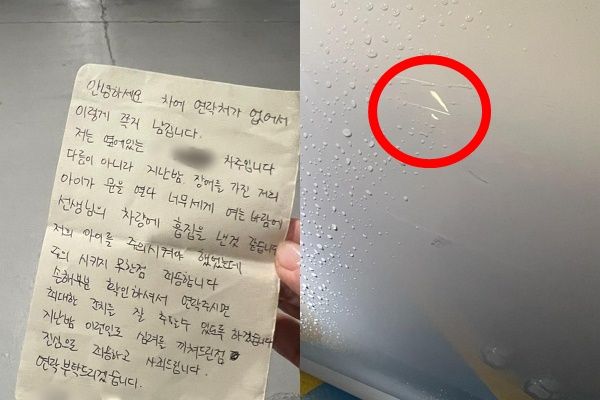 안녕하세요 차에 연락처가 없어서
이렇게 쪽지 남깁니다.
저는 옆에있는 차주입니다
다름이 아니라 지난밤, 장애를 가진 저희
아이가 문을 열다 너무세게 여는 바람에
선생님의 차량에 흠집을 낸것 같습니다
저희 아이를 주의시켜야 했었는데
주의 시키지 못한점 죄송합니다
손해부분 확인하셔서 연락주시면
최대한 조치를 잘 취할수 있도록 하겠습니다
지난밤 이런일로 심려를 끼쳐드린점
진심으로 죄송하고 사죄드립니다.
연락 부탁드리겠습니다.